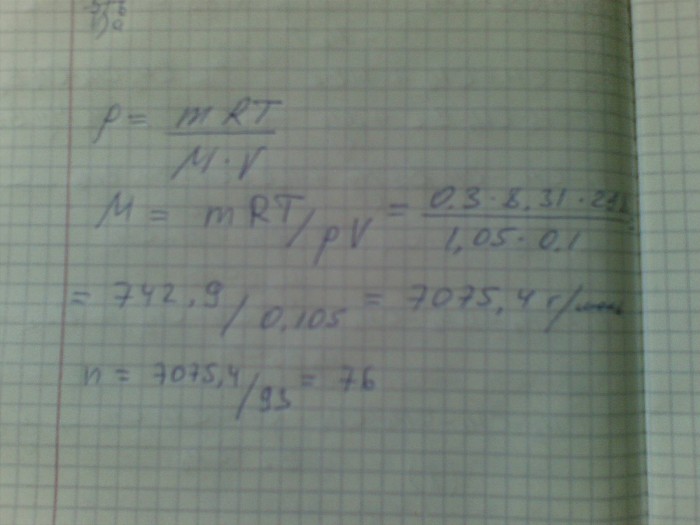 p = mRT / M · V
M = mRT / pV = 0.3 · 8.31 · / 1,05 · 0.1
= 742,9 / 0,105 = 7075,4 г/моль
n = 7075,4 / 93 = 76